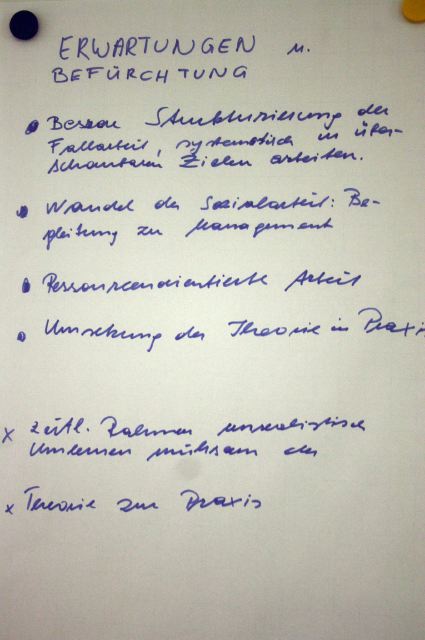 ERWARTUNGEN u.
BEFÜRCHTUNG
Bessere Strukturierung der
Fallarbeit, systematisch in über-
schaubaren Zielen arbeiten.
Wandel der Sozialarbeit: Be-
gleitung zu Management
Ressourcenorientierte Arbeit
Umsetzung der Theorie in Praxis
x zeitl. Rahmen unrealistisch
Umlernen mühsam
x Theorie zur Praxis